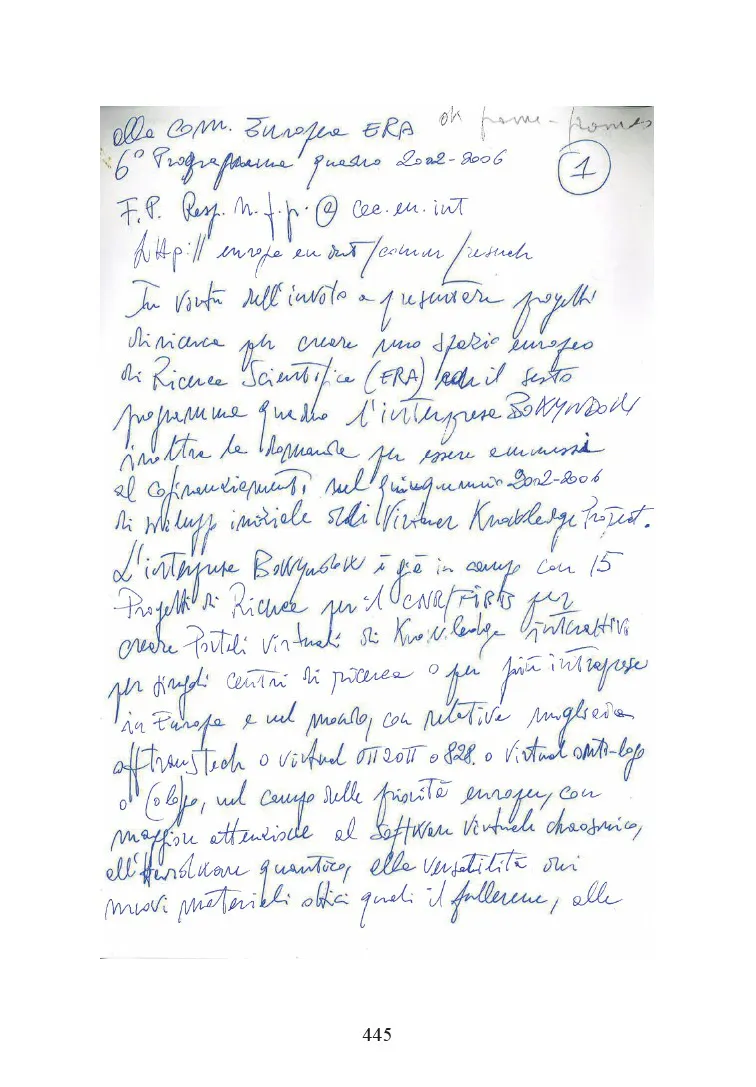 alla Com. Europea ERA ok
6° Programma quadro 2002-2006
1
F.P. Resp. N. f.p. @ cec.eu.int
http:// europa eu int /comm /
In virtù dell'invito a presentare progetti
di ricerca per creare uno spazio europeo
di Ricerca Scientifica (ERA) il sesto
programma quadro l'interprese
inoltra la domanda per essere ammessi
al cofinanziamento, nel quinquennio 2002-2006
di svilupp iniziale di Virtual Knowledge Project.
L'interprese è già in campo con 15
Progetti di Ricerca per il CNR/FIRB per
creare Portali virtuali di Knowledge interattivi
per singoli centri di ricerca o per più intraprese
in Europa e nel mondo, con relative
o virtual o 828. o virtual
o , nel campo delle priorità europee, con
maggiore attenzione al Software virtuale
all'hardware quantico, alla versatilità
nuovi materiali ottici quali il fullerene, alle
445